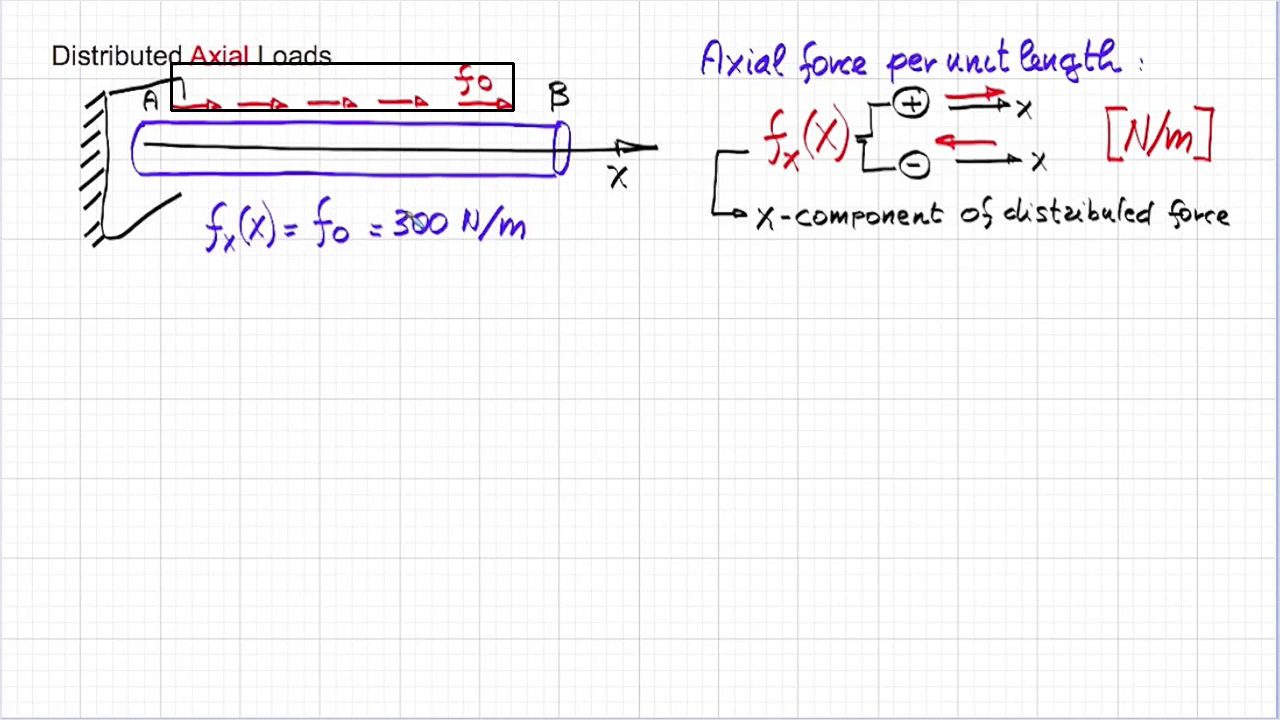 Distributed Axial Loads
A
f0
B
x
fx(x) = f0 = 300 N/m
Axial force per unit length :
fx(x)
+
x
[N/m]
-
x
x-component of distributed force